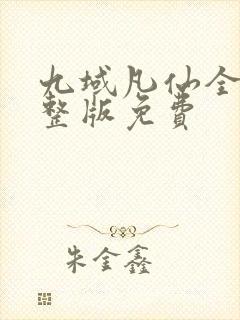 九域凡仙全
整版免费
朱金鑫